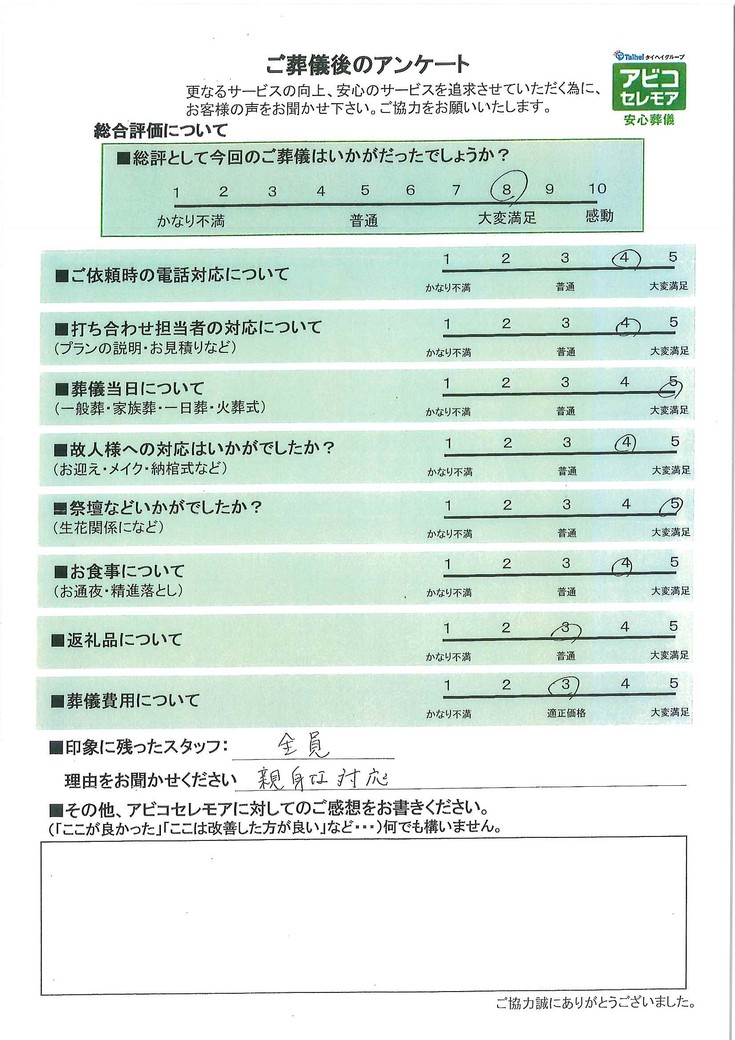 ご葬儀後のアンケート
Taihei タイヘイグループ
アビコ
セレモア
安心葬儀
更なるサービスの向上、安心のサービスを追求させていただく為に、
お客様の声をお聞かせ下さい。ご協力をお願いいたします。
総合評価について
■総評として今回のご葬儀はいかがだったでしょうか？
1 2 3 4 5 6 7 8 9 10
かなり不満 普通 大変満足 感動
■ご依頼時の電話対応について
1 2 3 4 5
かなり不満 普通 大変満足
■打ち合わせ担当者の対応について
(プランの説明・お見積りなど)
1 2 3 4 5
かなり不満 普通 大変満足
■葬儀当日について
(一般葬・家族葬・一日葬・火葬式)
1 2 3 4 5
かなり不満 普通 大変満足
■故人様への対応はいかがでしたか？
(お迎え・メイク・納棺式など)
1 2 3 4 5
かなり不満 普通 大変満足
■祭壇などいかがでしたか？
(生花関係になど)
1 2 3 4 5
かなり不満 普通 大変満足
■お食事について
(お通夜・精進落とし)
1 2 3 4 5
かなり不満 普通 大変満足
■返礼品について
1 2 3 4 5
かなり不満 普通 大変満足
■葬儀費用について
1 2 3 4 5
かなり不満 適正価格 大変満足
■印象に残ったスタッフ： 全員
理由をお聞かせください 親身な対応
■その他、アビコセレモアに対してのご感想をお書きください。
(「ここが良かった」「ここは改善した方が良い」など・・・)何でも構いません。
ご協力誠にありがとうございました。